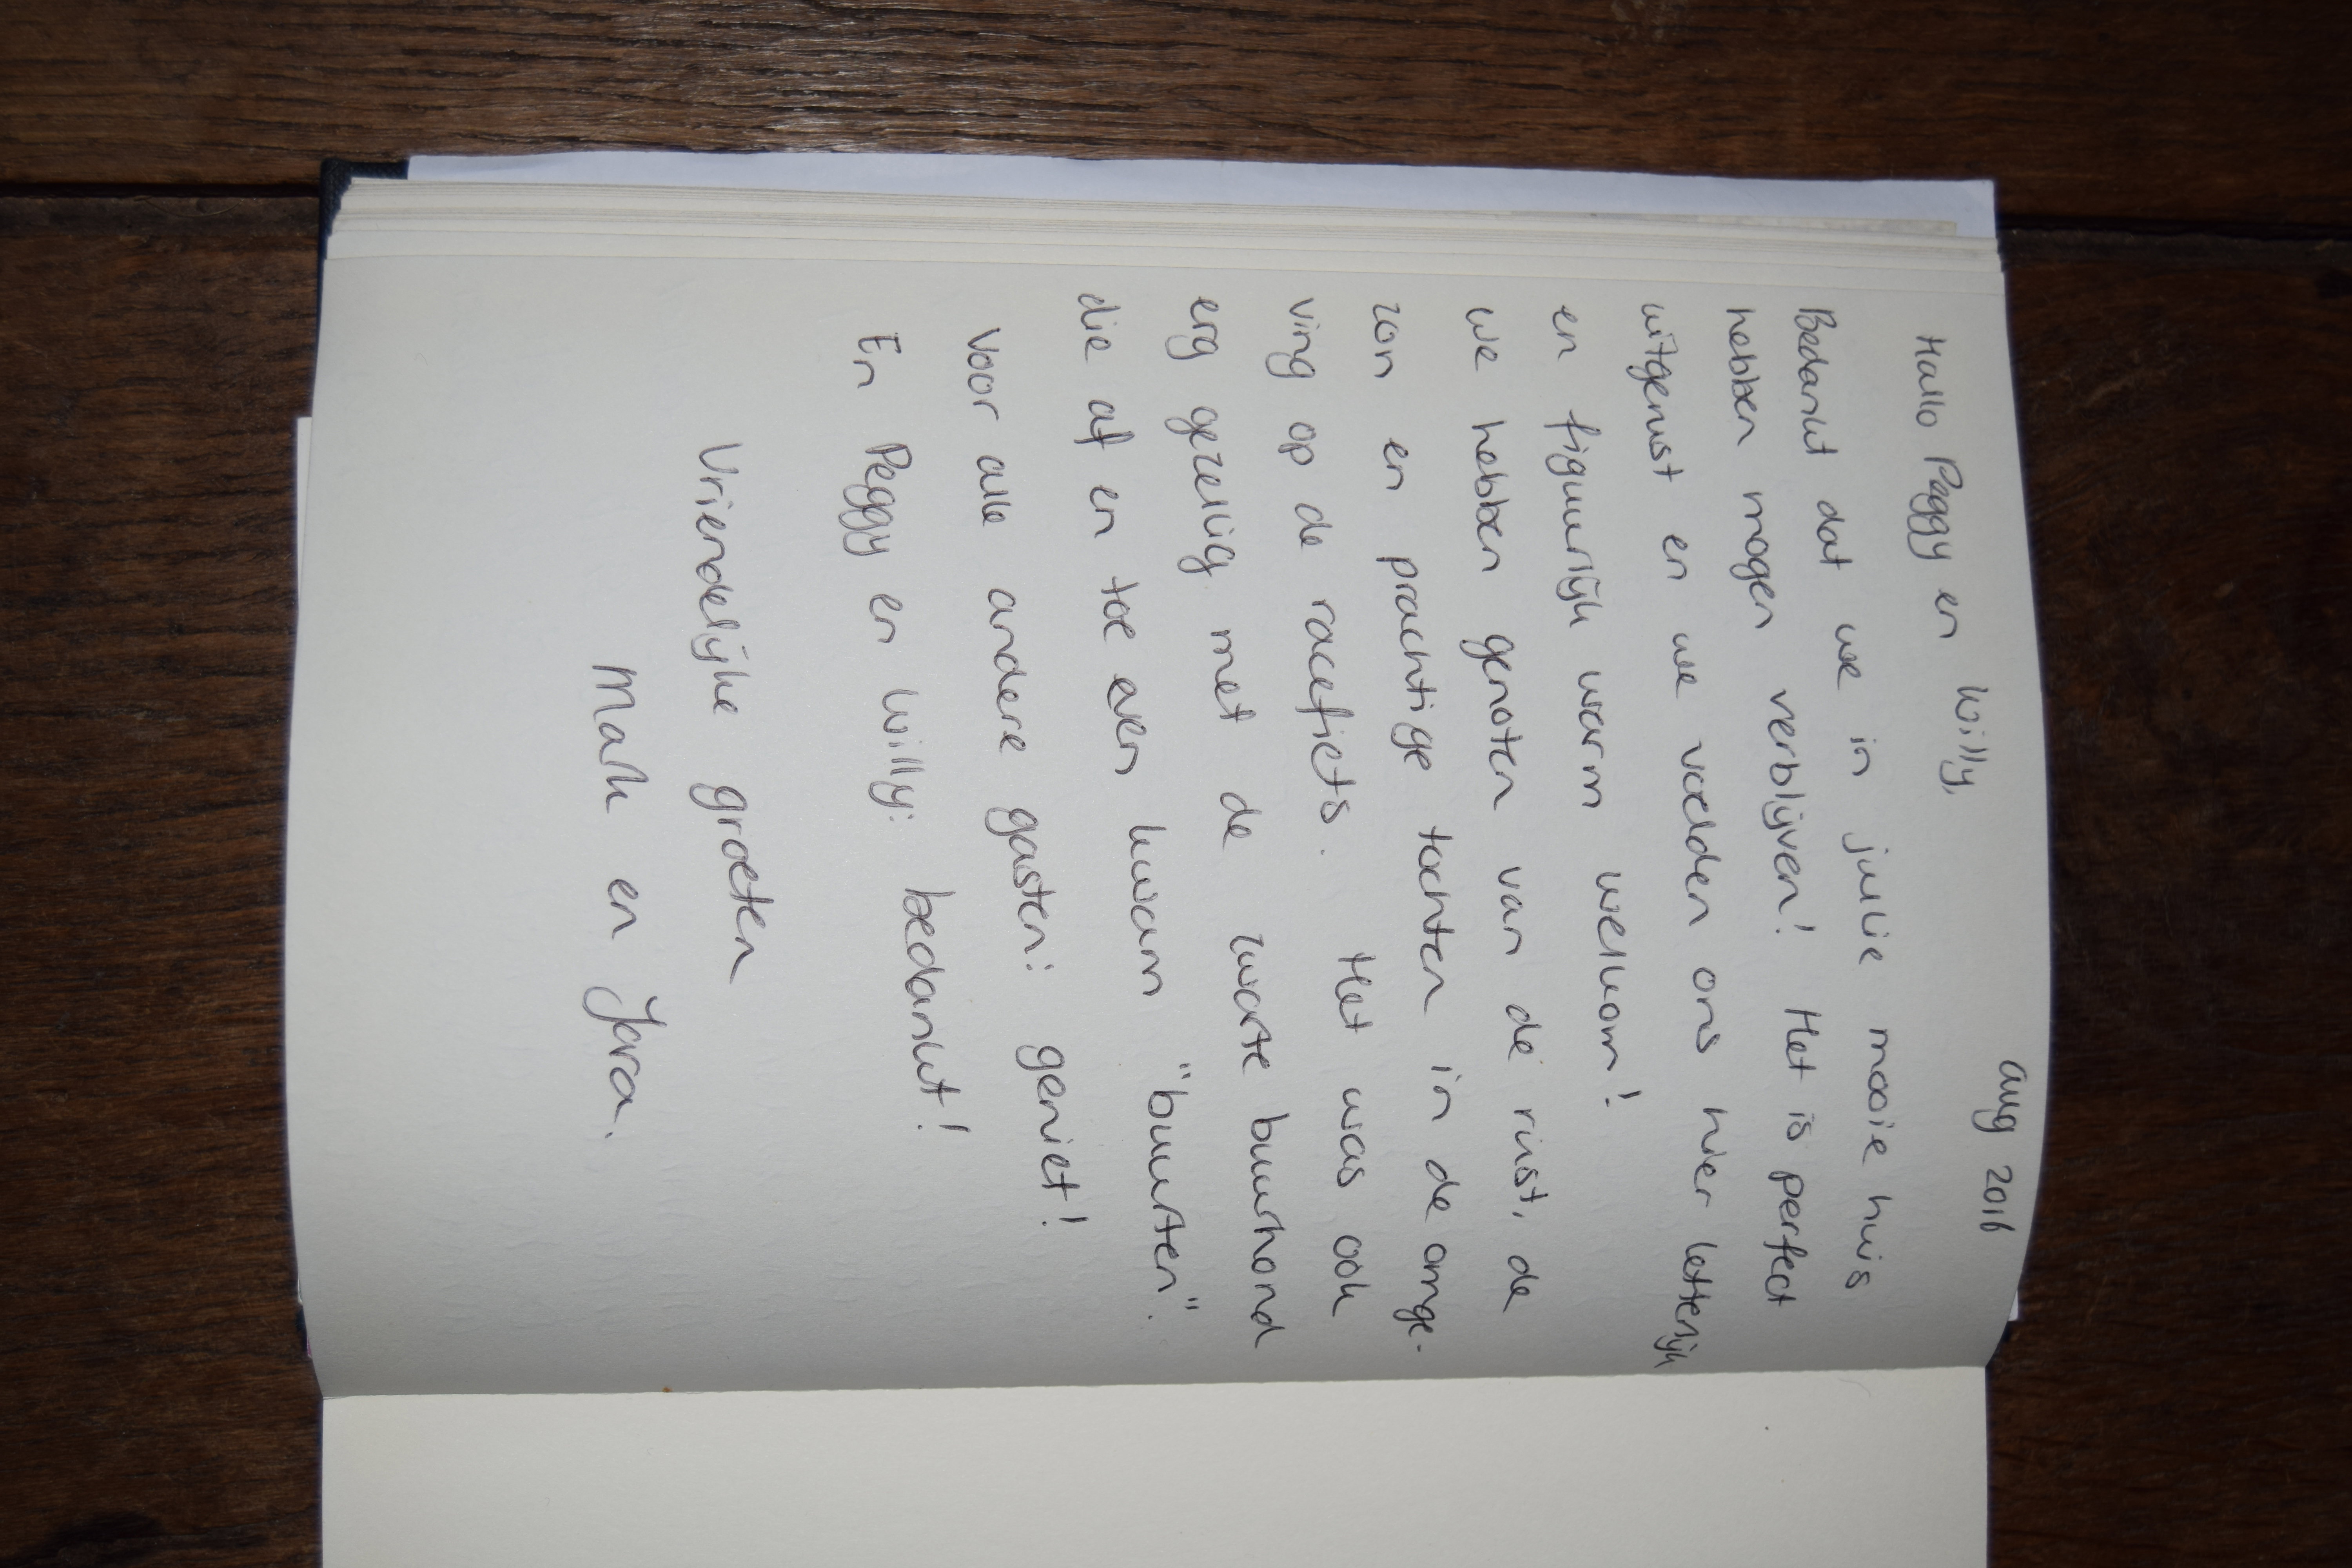 aug 2016
Hallo Peggy en Willy,
Bedankt dat we in jullie mooie huis
hebben mogen verblijven! Het is perfect
uitgerust en we voelden ons hier letterlijk
en figuurlijk warm welkom!
We hebben genoten van de rust, de
zon en prachtige tochten in de omge-
ving op de racefiets. Het was ook
erg gezellig met de zwarte buurhond
die af en toe even kwam "buurten".
Voor alle andere gasten: geniet!
En Peggy en Willy: bedankt!
Vriendelijke groeten
Mark en Jara.